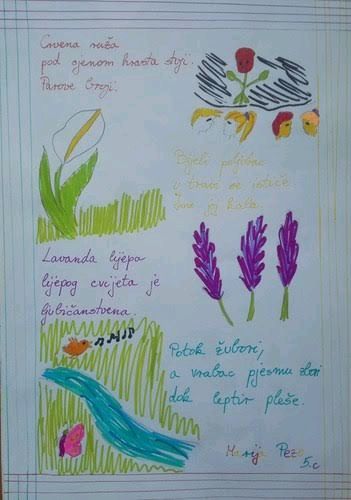 Crvena ruža
pod sjenom hrasta stoji.
Parove broji.
Bijeli poljubac
u travi se ističe
Ime joj kala.
Lavanda lijepa
lijepog cvijeta je
ljubičanstvena.
Potok žubori,
a vrabac pjesmu zbori
dok leptir pleše.
Marija Pezo
5.c